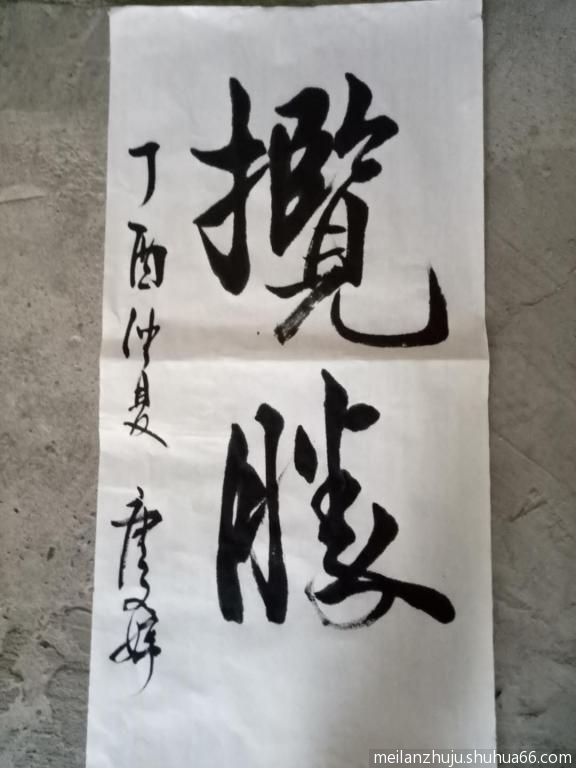 攬勝
丁酉仲夏 唐文娣
meilanzhuju.shuhua66.com